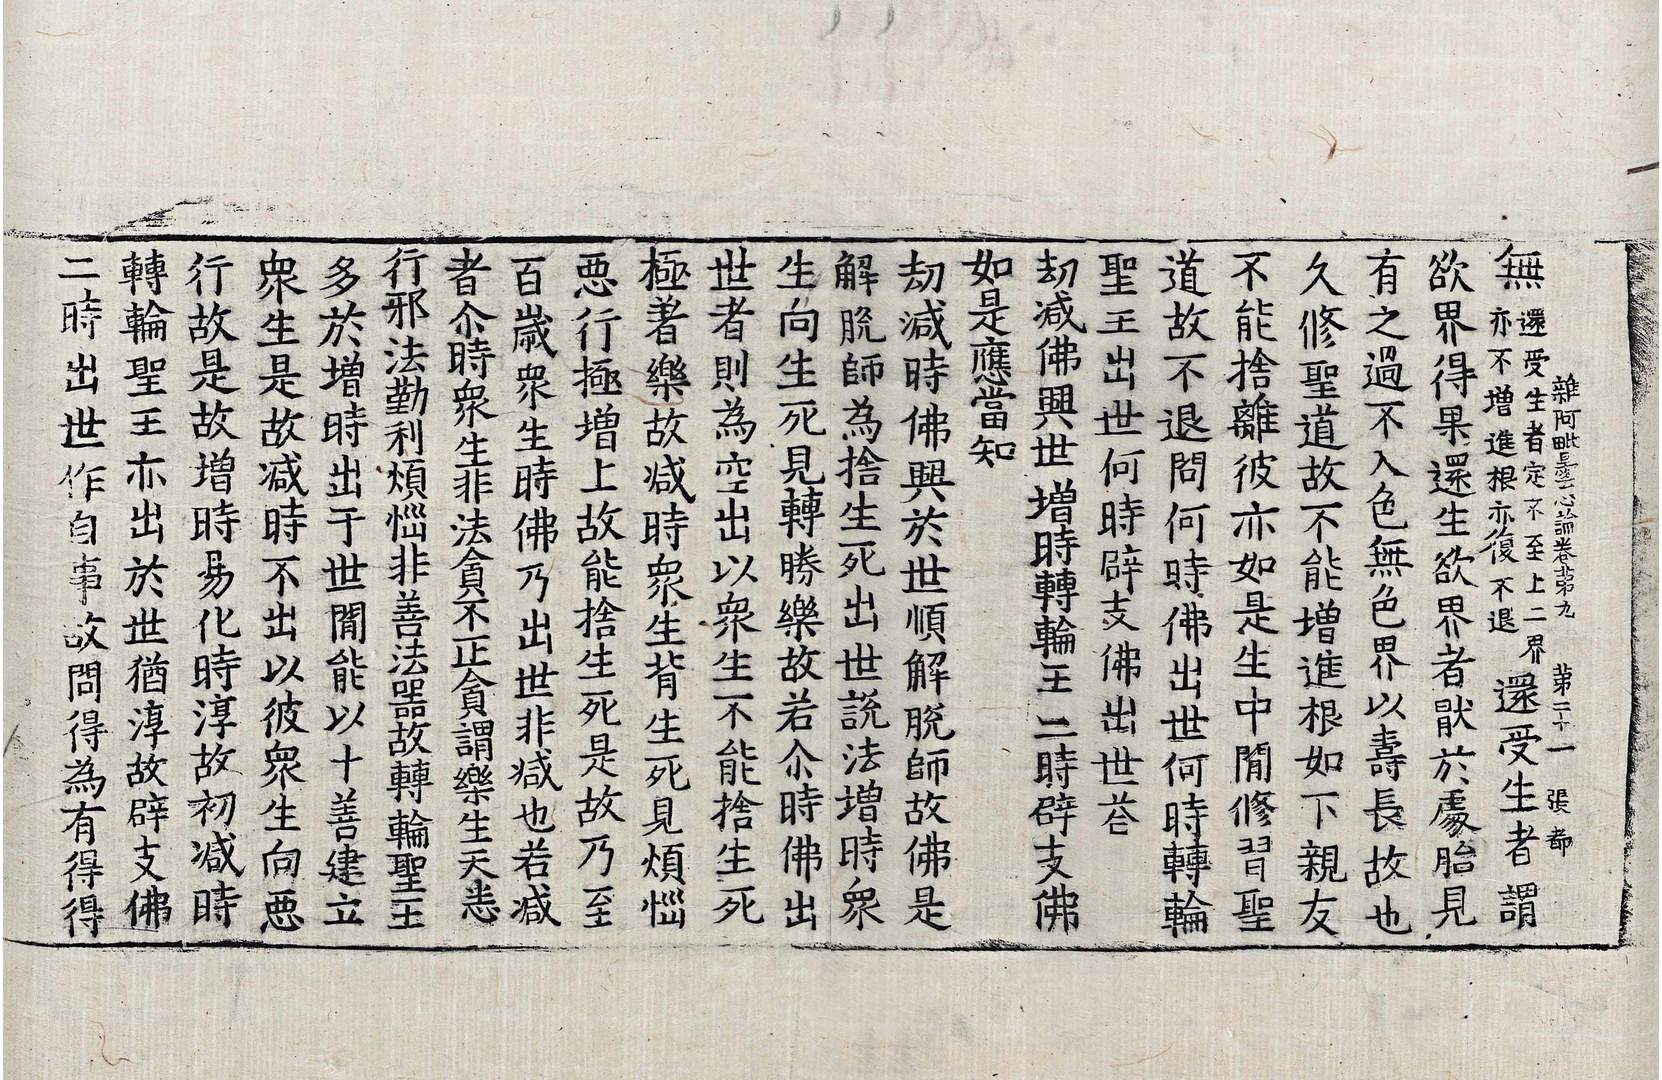 雜阿毗曇心論卷苐九 苐二十一 張都
無還受生者定不至上二界亦不增進根亦復不退還受生者謂
欲界得果還生欲界者猒於處胎見
有之過不入色無色界以壽長故也
久修聖道故不能增進根如下親友
不能捨離彼亦如是生中閒修習聖
道故不退問何時佛出世何時轉輪
聖王出世何時辟支佛出世荅
劫減佛興世 增時轉輪王 二時辟支佛
如是應當知
劫減時佛興於世順解脫師故佛是
解脫師為捨生死出世說法增時衆
生向生死見轉勝樂故若尒時佛出
世者則為空出以衆生不能捨生死
極著樂故減時衆生背生死見煩惱
惡行極增上故能捨生死是故乃至
百歲衆生時佛乃出世非減也若減
者尒時衆生非法貪不正貪謂樂生天恚
行邪法勤利煩惱非善法器故轉輪聖王
多於增時出于世閒能以十善建立
衆生是故減時不出以彼衆生向惡
行故是故增時易化時淳故初減時
轉輪聖王亦出於世猶淳故辟支佛
二時出世作自事故問得為有得得